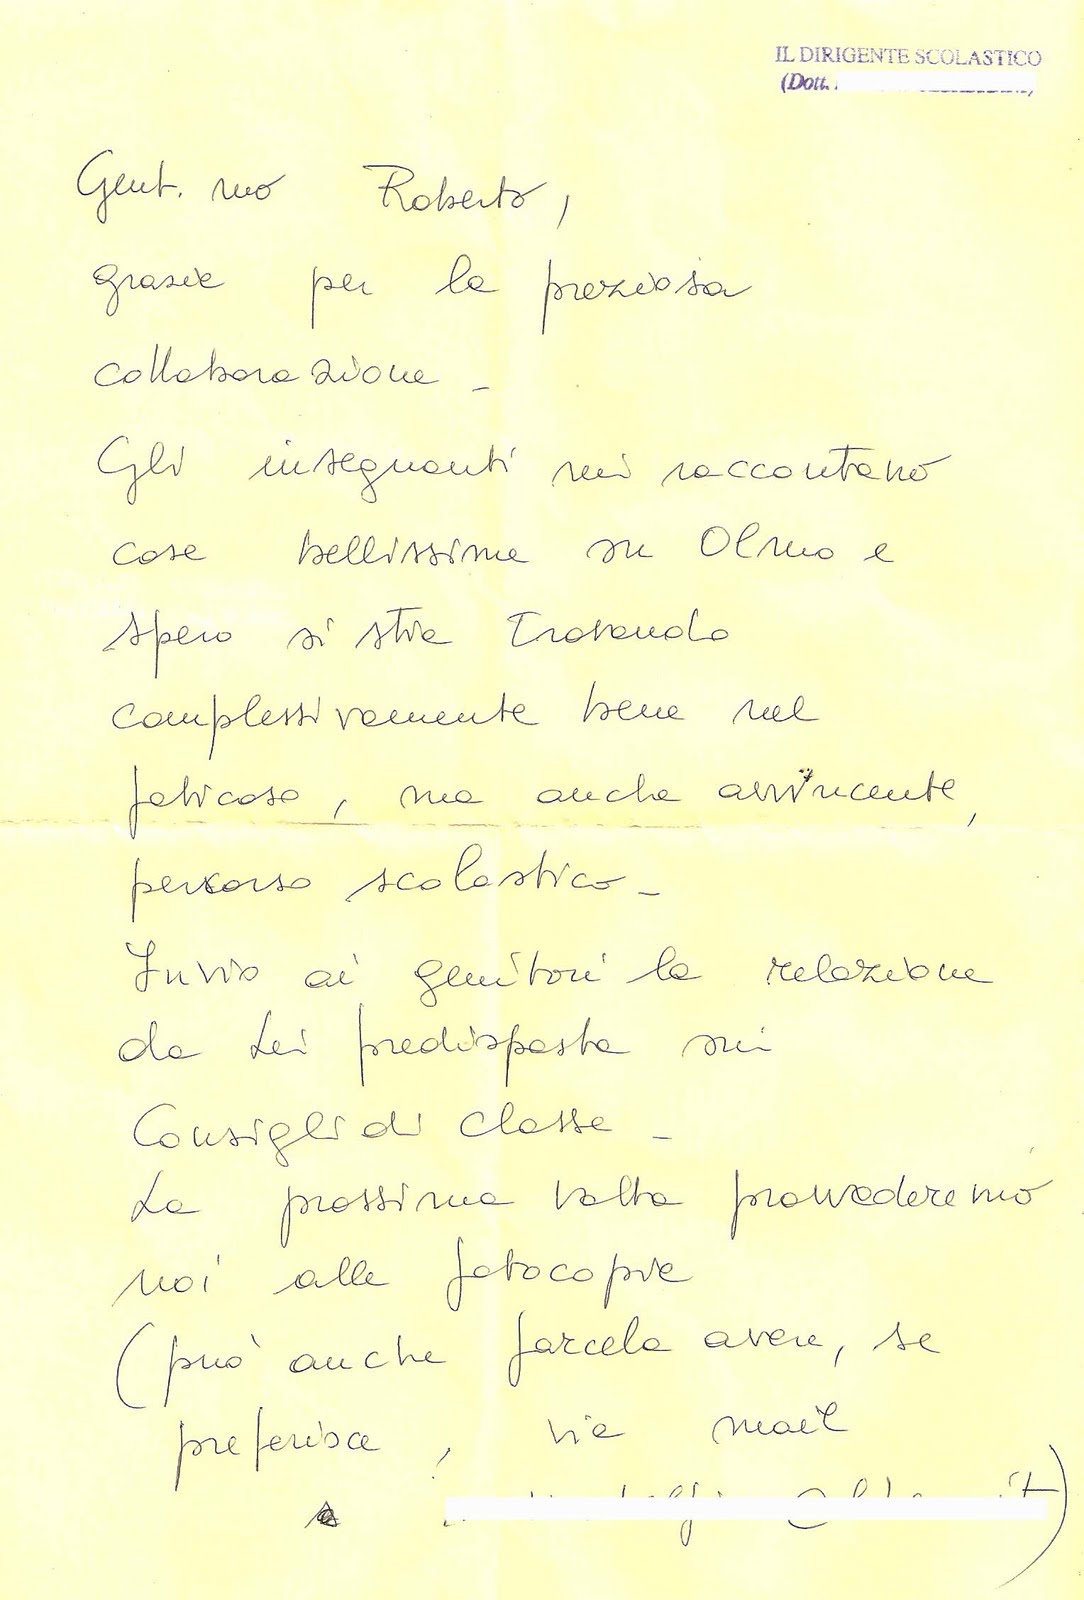 IL DIRIGENTE SCOLASTICO
(Dott.
Gent.mo Roberto,
grazie per la preziosa
collaborazione _
Gli insegnanti mi raccontano
cose bellissime su Olmo e
spero si stia trovando
complessivamente bene nel
faticoso, ma anche avvincente,
percorso scolastico _
Invio ai genitori la relazione
da Lei predisposta sui
Consigli di classe _
La prossima volta provvederemo
noi alle fotocopie
(può anche farcela avere, se
preferisce, via mail
a